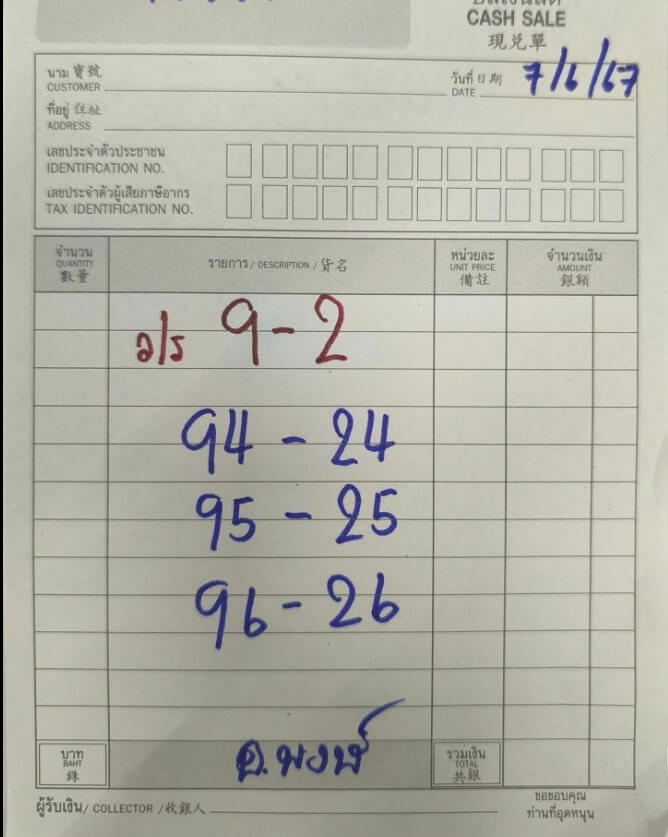 CASH SALE
現兑單
นาม寶號
CUSTOMER
วันที่日期
DATE
7/6/67
ที่อยู่住址
ADDRESS
เลขประจำตัวประชาชน
IDENTIFICATION NO.
เลขประจำตัวผู้เสียภาษีอากร
TAX IDENTIFICATION NO.
จำนวน
QUANTITY
數量
รายการ/ DESCRIPTION / 貨名
หน่วยละ
UNIT PRICE
備註
จำนวนเงิน
AMOUNT
銀額
ว/ร 9-2
94 - 24
95 - 25
96 - 26
บาท
BAHT
銖
อ.พงษ์
รวมเงิน
TOTAL
共銀
ผู้รับเงิน/ COLLECTOR /收銀人
ขอขอบคุณ
ท่านที่อุดหนุน